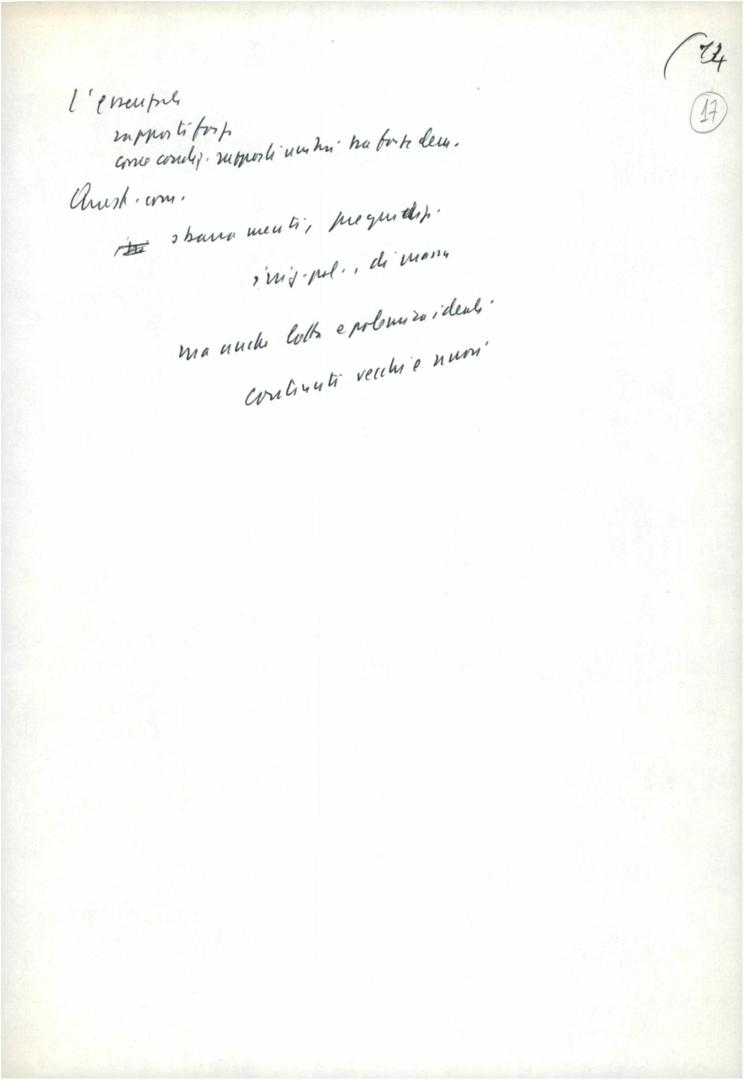 24
17
l'essenziale
rapporti forze
come condiz. rapporti unitari tra forze dem.
Quest. com.
sbarramenti, pregiudiz.
iniz. pol., di massa
ma anche lotta e polemica ideali
contenuti vecchi e nuovi